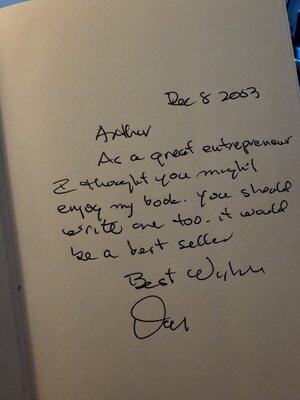 Dec 8 2003
Arthur
As a great entrepreneur
I thought you might
enjoy my book. You should
write one too. it would
be a best seller
Best Wishes